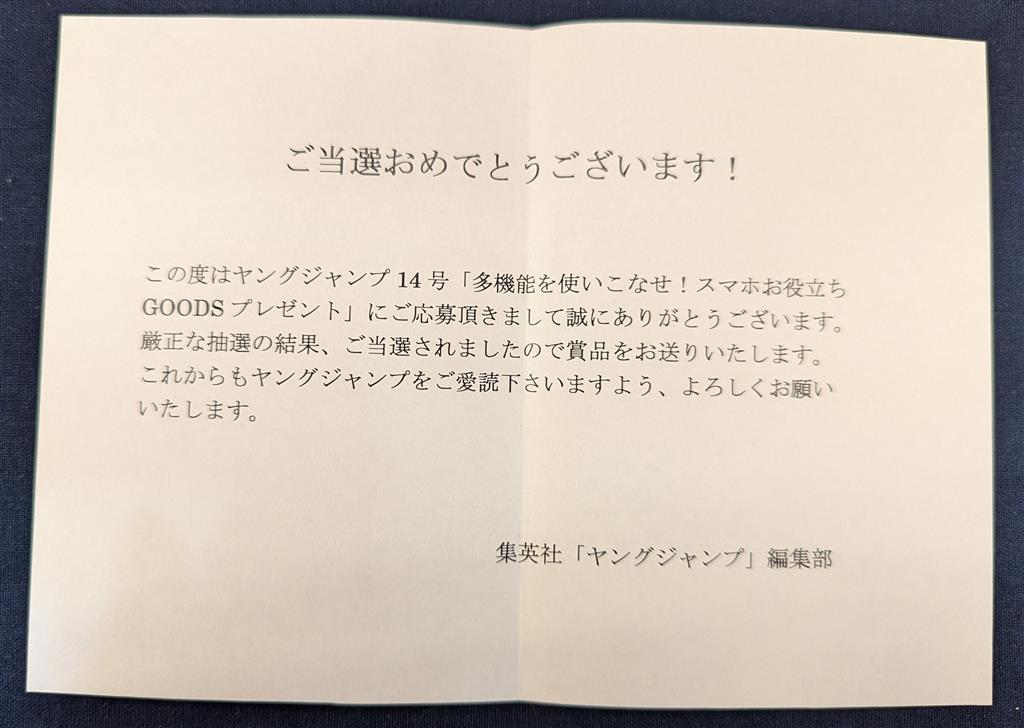 ご当選おめでとうございます！
この度はヤングジャンプ 14 号「多機能を使いこなせ！スマホお役立ち
GOODS プレゼント」にご応募頂きまして誠にありがとうございます。
厳正な抽選の結果、ご当選されましたので賞品をお送りいたします。
これからもヤングジャンプをご愛読下さいますよう、よろしくお願い
いたします。
集英社「ヤングジャンプ」編集部